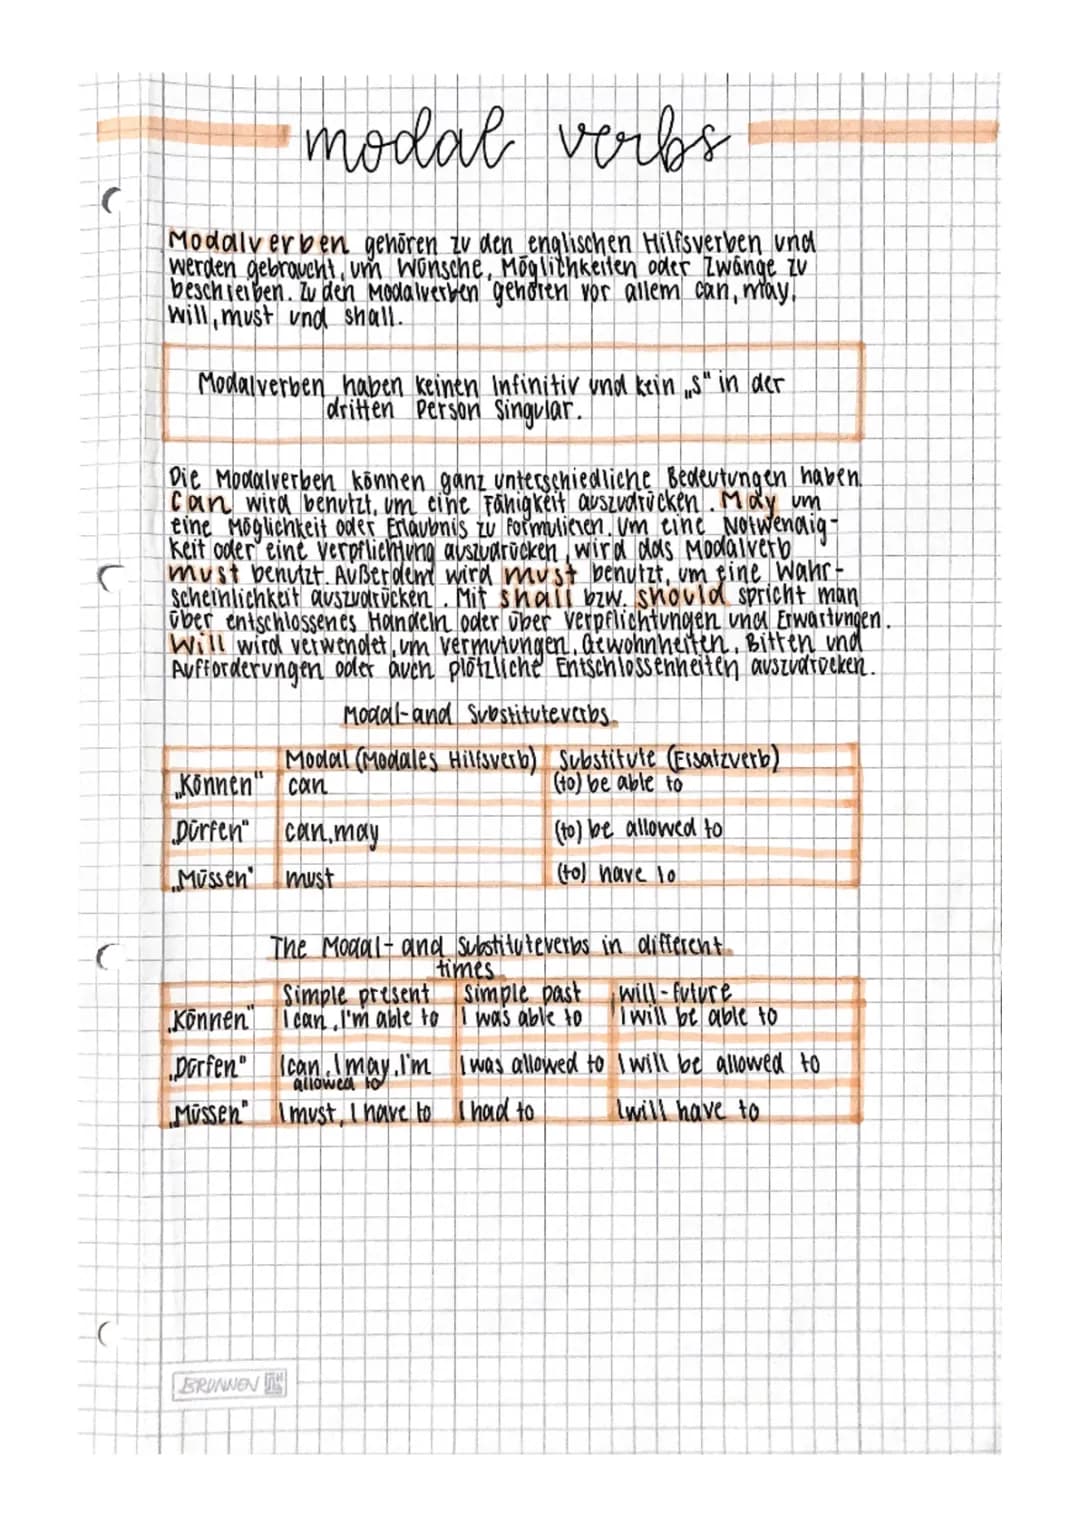 modal verbs
Modalverben gehören zu den englischen Hilfsverben und
werden gebraucht, um Wünsche, Möglichkeiten oder Zwänge zu
beschreiben. Zu den Modalverben gehören vor allem can, may,
will, must und shall.
Modalverben haben keinen Infinitiv und kein „s" in der
dritten Person Singular.
Die Modalverben können ganz unterschiedliche Bedeutungen haben.
Can wird benutzt, um eine Fähigkeit auszudrücken. May um
eine Möglichkeit oder Erlaubnis zu formulieren. Um eine Notwendig-
keit oder eine Verpflichtung auszudrücken, wird das Modalverb
must benutzt. Außerdem wird must benutzt, um eine Wahr-
scheinlichkeit auszudrücken. Mit shall bzw. should spricht man
über entschlossenes Handeln oder über Verpflichtungen und Erwartungen.
Will wird verwendet, um Vermutungen, Gewohnheiten, Bitten und
Aufforderungen oder auch plötzliche Entschlossenheiten auszudrücken.
Modal-and Substituteverbs
Modal (Modales Hilfsverb) Substitute (Ersatzverb)
„Können" can (to) be able to
„Dürfen" can, may (to) be allowed to
„Müssen" must (to) have to
The Modal- and Substituteverbs in different
times
Simple present Simple past will-future
„Können" I can, I'm able to I was able to I will be able to
„Dürfen" I can, I may, I'm I was allowed to I will be allowed to
allowed to
„Müssen" I must, I have to I had to I will have to
BRUNNEN